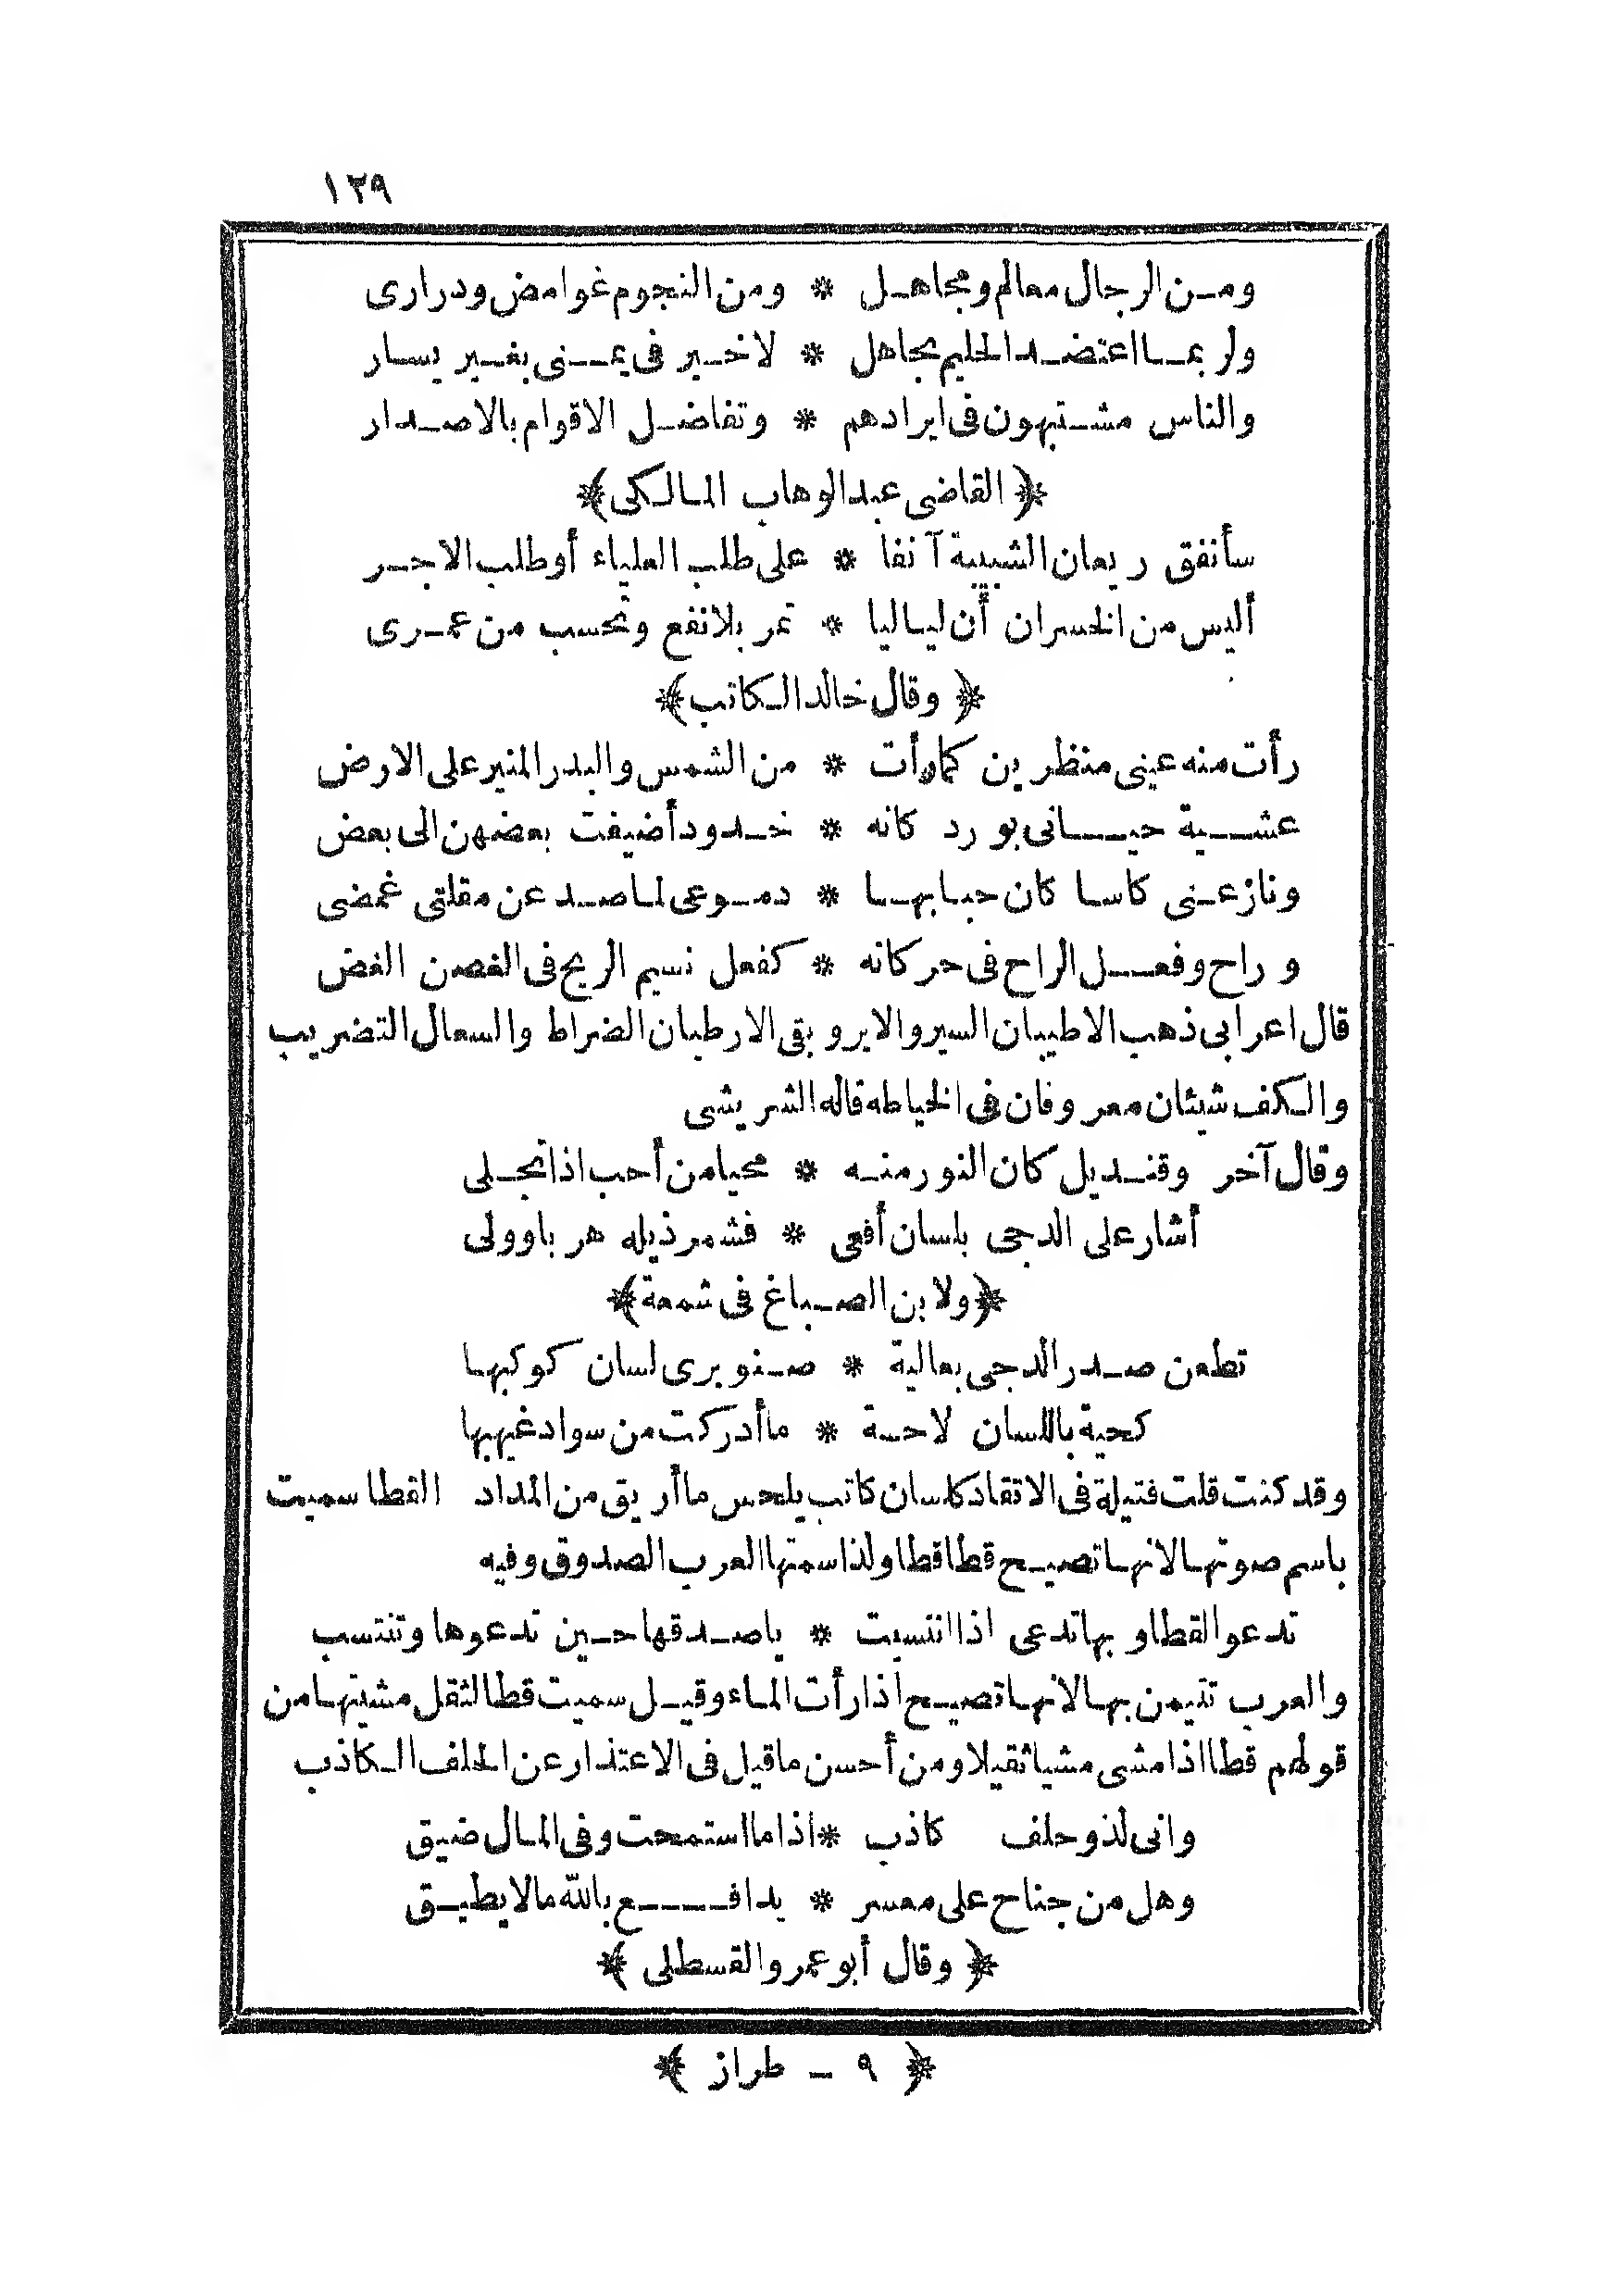 ١٢٩
ومن الرجال معالم ومجاهل * ومن النجوم غوامض ودرارى
ولربما اعتضد الحليم بجاهل * لا خير فى يمنى بغير يسار
والناس مشتبهون فى ايرادهم * وتفاضل الاقوام بالاصدار
﴿القاضى عبد الوهاب المالكى﴾
سأنفق ريعان الشبيبة آنفا * على طلب العلياء أو طلب الاجر
أليس من الخسران أن لياليا * تمر بلا نفع وتحسب من عمرى
﴿وقال خالد الكاتب﴾
رأت منه عينى منظرين كما رأت * من الشمس والبدر المنير على الارض
عشية حيانى بورد كانه * خدود أضيفت بعضهن الى بعض
ونازعنى كاسا كان حبابها * دموعى لما صد عن مقلتى غمضى
وراح وفعل الراح فى حركاته * كفعل نسيم الريح فى الغصن الغض
قال اعرابى ذهب الاطيبان السير والاير وبقى الارطبان الضراط والسعال التضريب
والكف شيئان معروفان فى الخياطه قاله الشريشى
وقال آخر وقنديل كان النور منه * محيا من أحب اذا تجلى
أشار على الدجى بلسان أفعى * فشمر ذيله هربا وولى
﴿ولابن الصباغ فى شمعة﴾
تطعن صدر الدجى بعالية * صنوبرى لسان كوكبها
كحية باللسان لاحسة * ما أدركت من سواد غيهبها
وقد كنت قلت فتيلة فى الاتقاد كلسان كاتب يلحس ما أريق من المداد القطا سميت
باسم صوتها لانها تصيح قطا قطا ولذا سمتها العرب الصدوق وفيه
تدعو القطا وبها تدعى اذا انتسبت * يا صدقها حين تدعوها وتنتسب
والعرب تتيمن بها لانها تصيح اذا رأت الماء وقيل سميت قطا لثقل مشيتها من
قولهم قطا اذا مشى مشيا ثقيلا ومن أحسن ما قيل فى الاعتذار عن الحلف الكاذب
وانى لذو حلف كاذب * اذا ما استمحت وفى المال ضيق
وهل من جناح على معسر * يدافع بالله ما لا يطيق
﴿وقال أبو عمرو القسطلى﴾
﴿٩ - طراز﴾